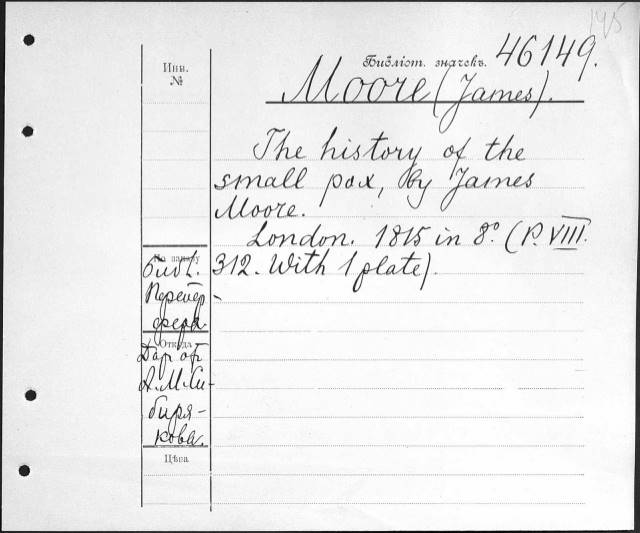 145
Библіот. значекъ. 46149.
Инв.
№
Moore (James).
The history of the
small pox, by James
Moore.
London. 1815 in 8º. (P. VIII.
312. With 1 plate).
По каталу
Библ.
Перейер-
фера
Откуда
Дар от
А. М. Си-
биря-
кова.
Цѣна